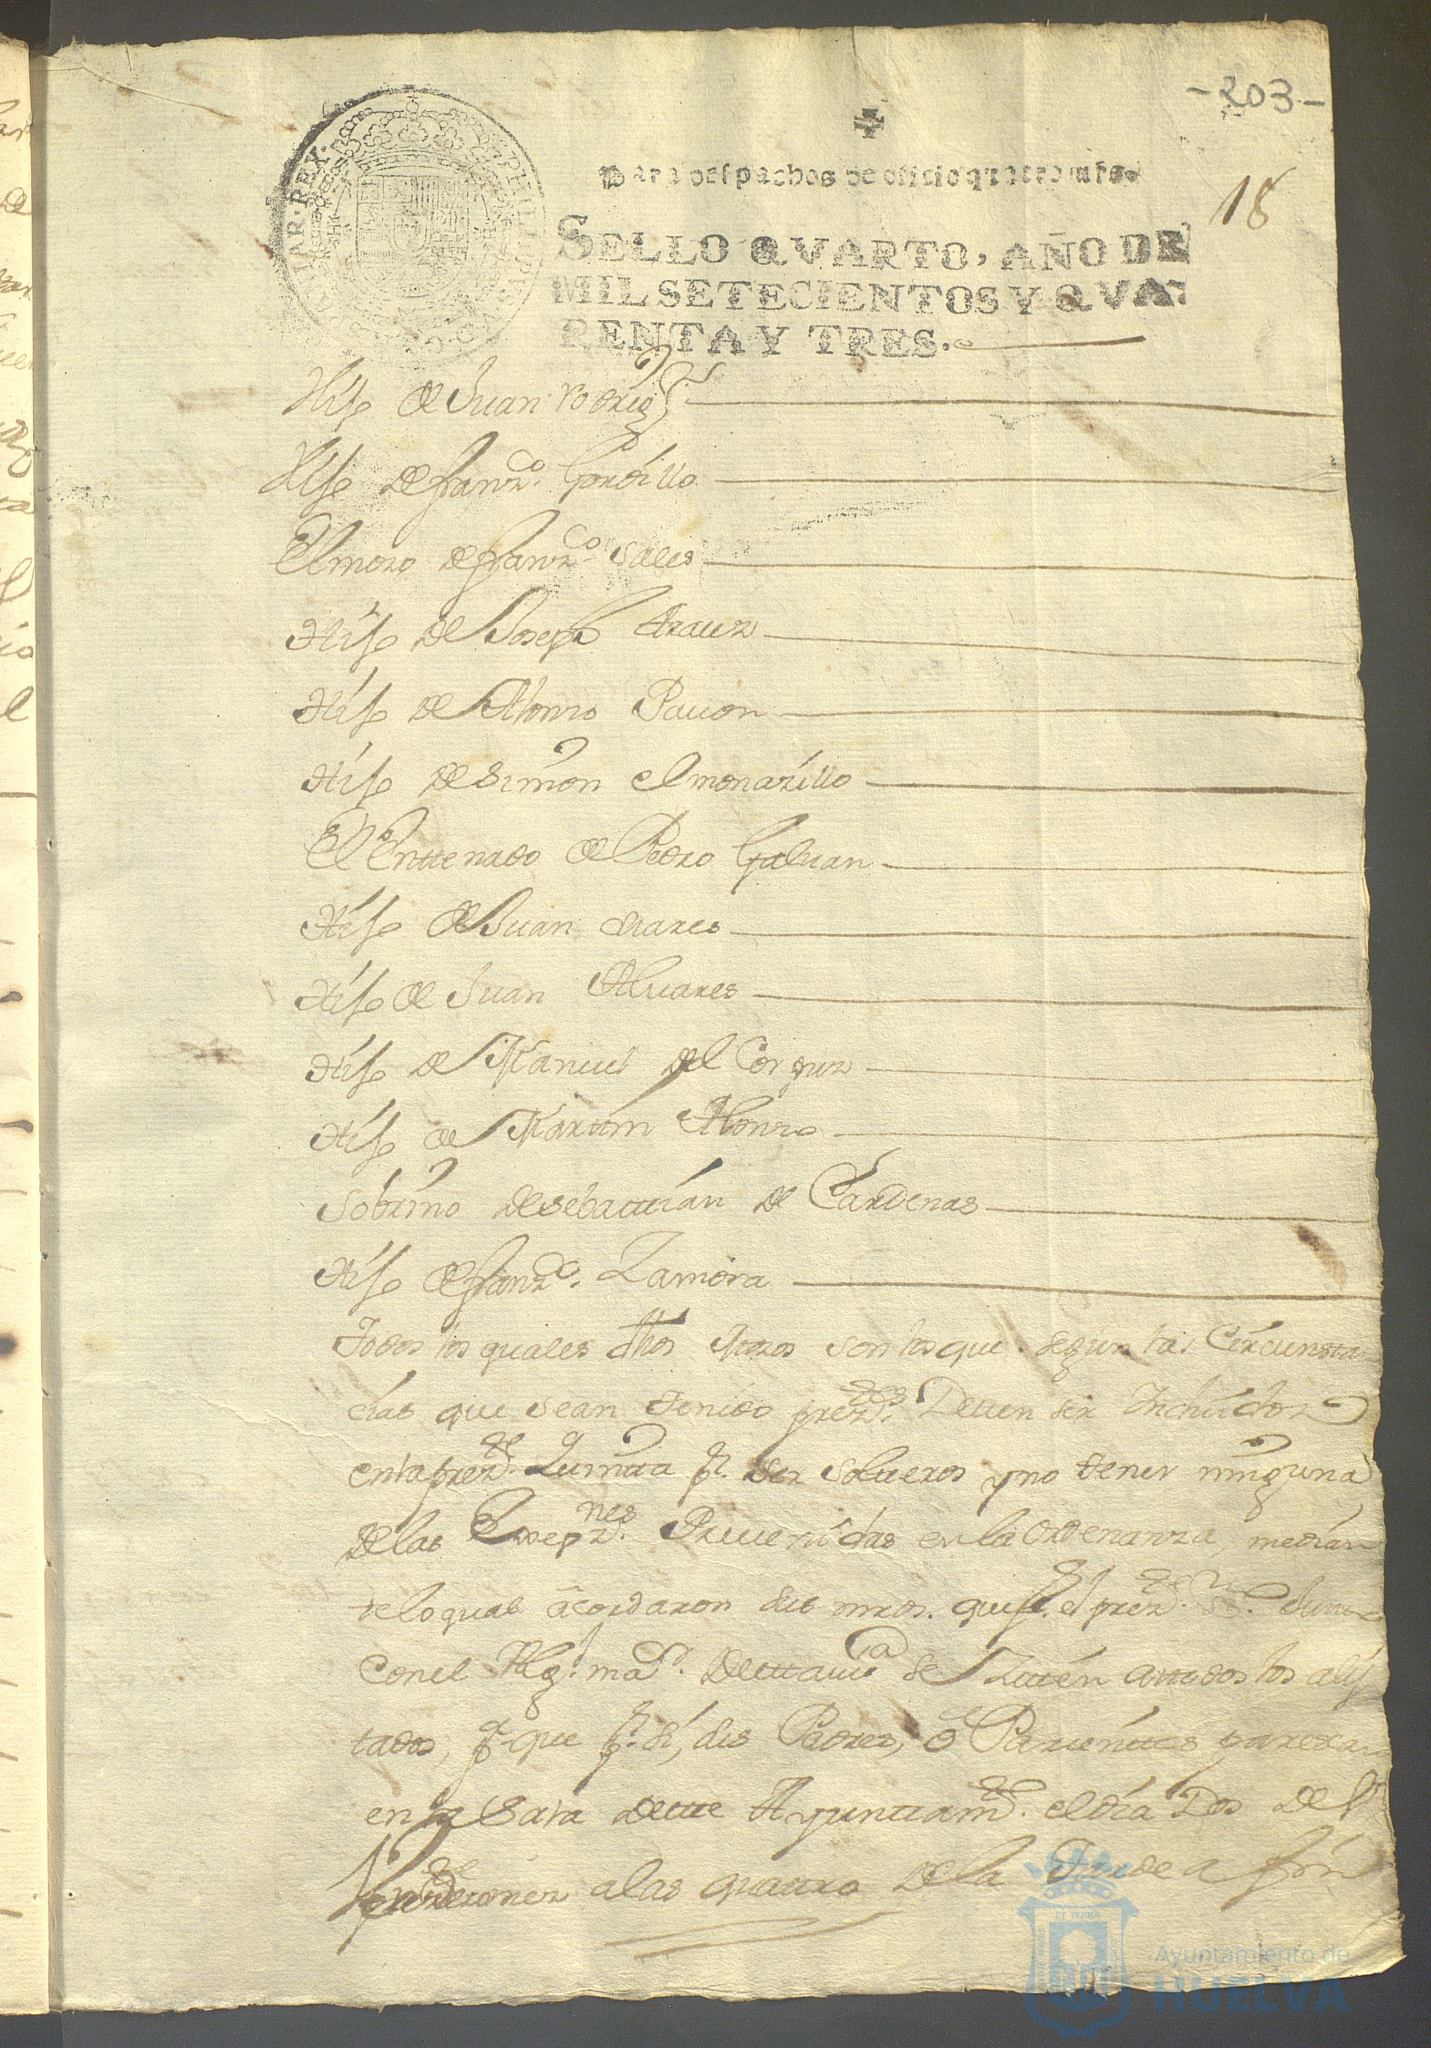 -203-
18
Para despachos de oficio quatro mrs.
SELLO QVARTO, AÑO DE
MIL SETECIENTOS Y QVA-
RENTA Y TRES.
Hijo de Juan rodrigz
Hijo de franzco. Gordillo
El moso de franzco Sales
Hijo de Joseph Arauz
Hijo de Alonso Pavon
Hijo de Simon el monarillo
El Enttenado de Pedro Galvan
Hijo de Juan
Hijo de Juan Alvares
Hijo de Manuel del Corpuz
Hijo de Martin Alonso
Sobrino de Sebasttian de Cardenas
Hijo de franzco. Zamora
Todos los quales dhos Mozos son los que segun las Circunstan
cias que se an tenido prezttes. Deven ser Incluidos
en la prezte. Quintta pr. ser Soltteros y no tener ninguna
de las Exsepznes. Prevenidas en la Ordenanza, median
te lo qual acordaron sus mrds. que pr. el prezte. Sno. Juntto
con el Algl. mor. destta va se Zitten a ttodos los alis
tados, pa. que pr. si, sus Padres, ó Parienttes parezcan
en la Sala deste Ayunttamto. el dia Dos de
a las quattro de la Tarde a fin
Ayuntamiento de
HUELVA